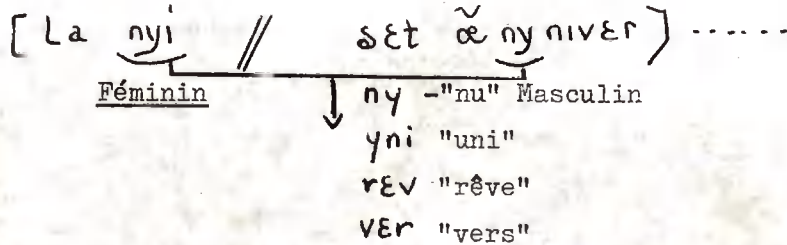 [ La nyi // sɛt œ̃ ny nivɛr ) ......
Féminin ny -"nu" Masculin
yni "uni"
rɛv "rêve"
vɛr "vers"